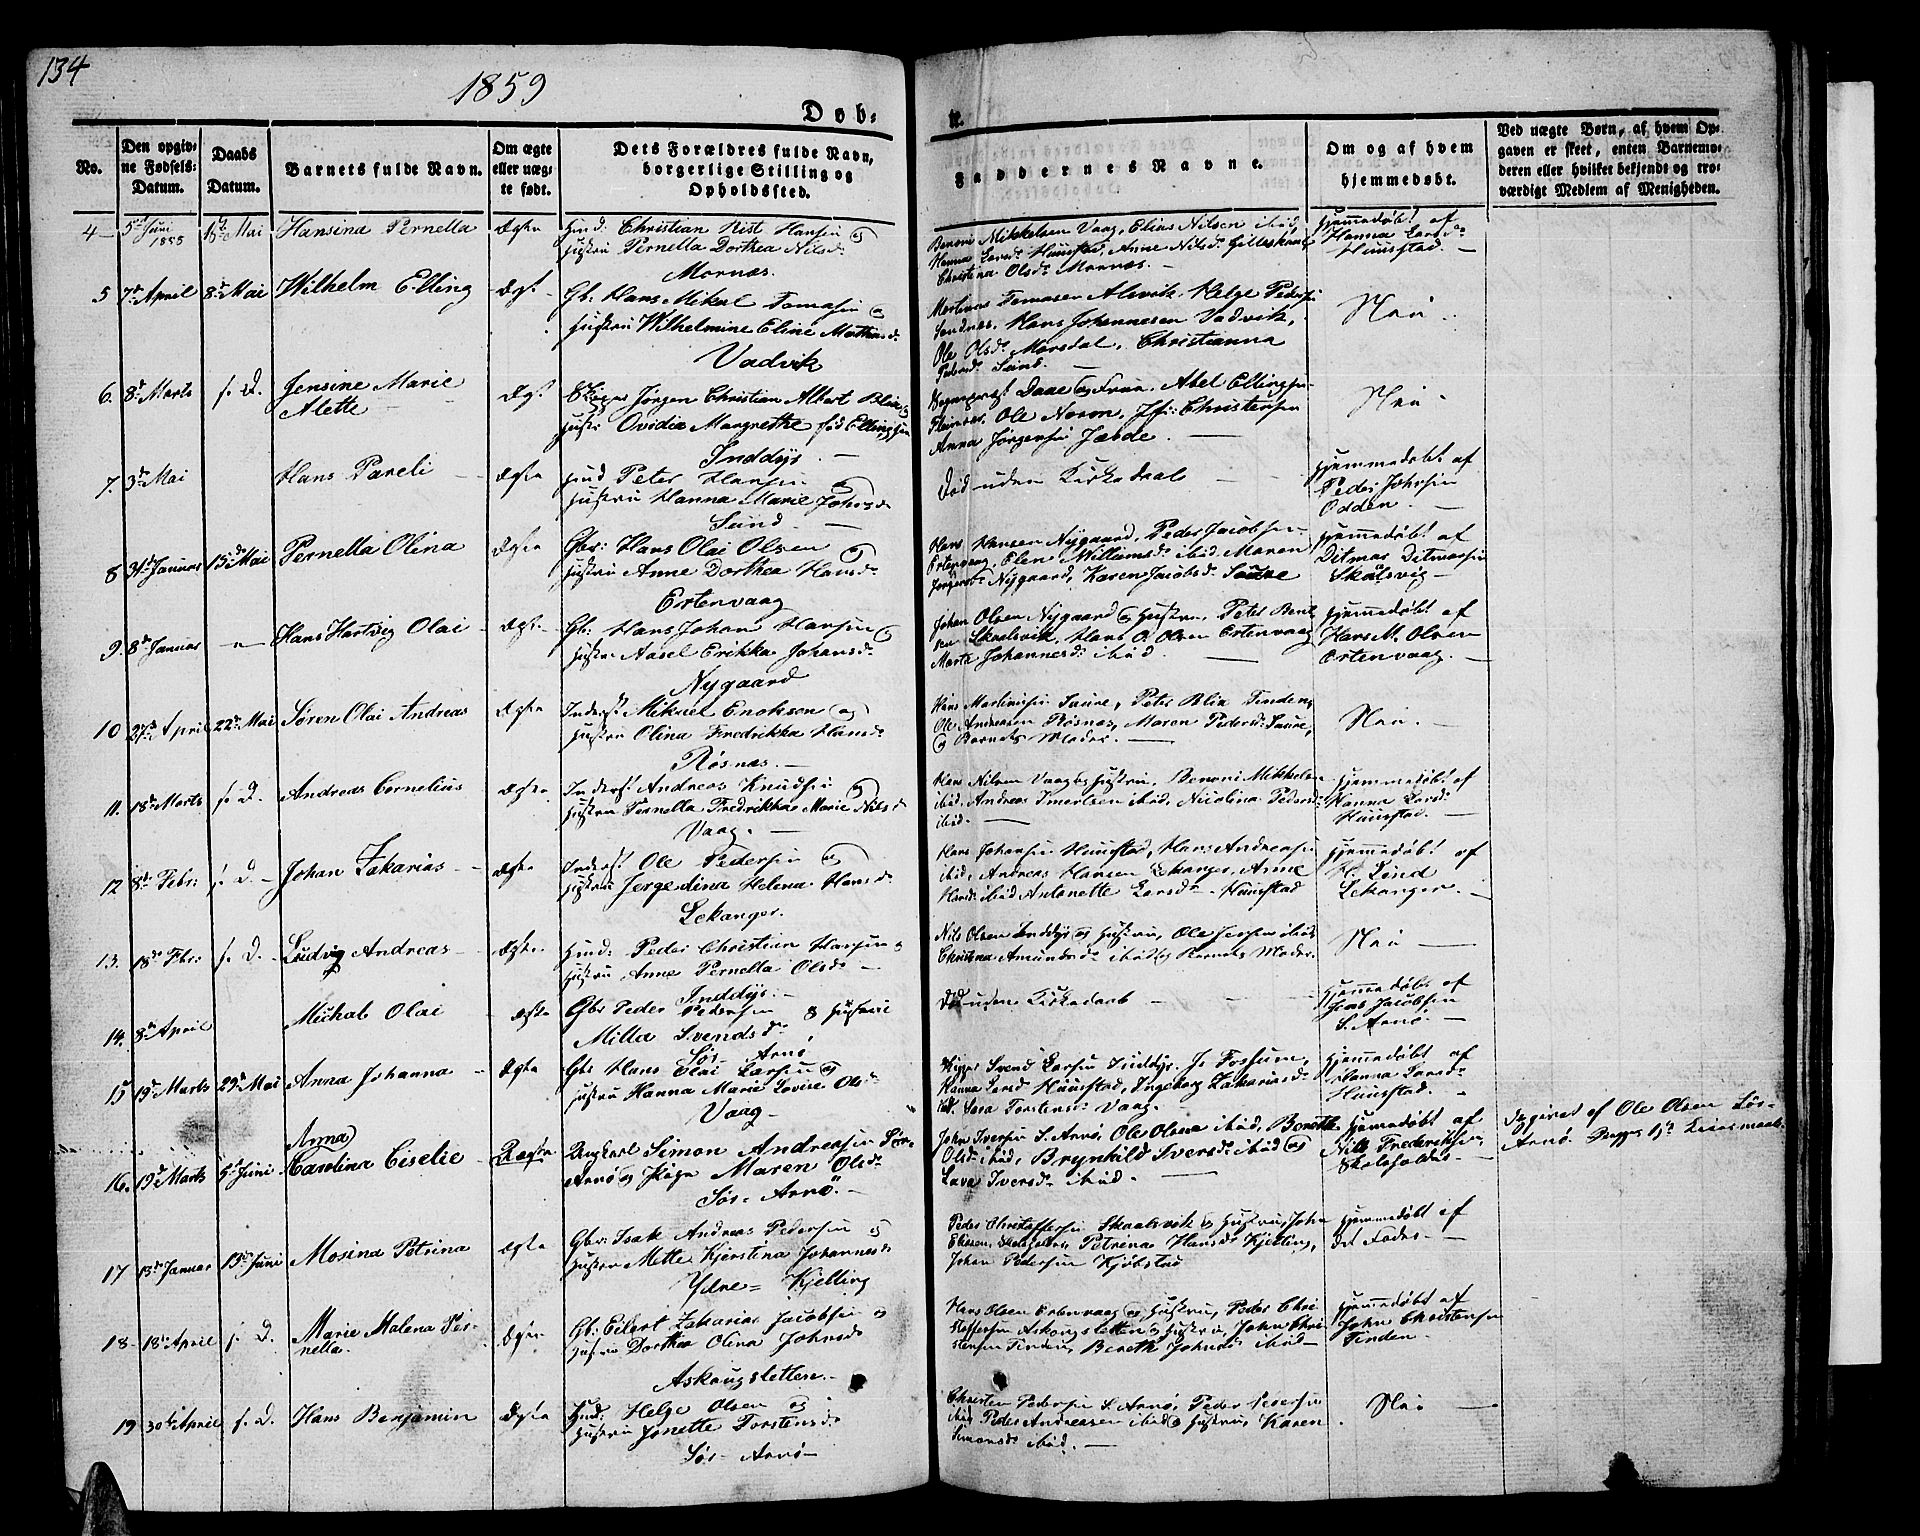 134
1859
Døb-
te.
No.
Den opgiv-
ne Fødsels-
Datum.
Daabs
Datum.
Barnets fulde Navn.
Om ægte
eller uæg-
te født.
Dets Forældres fulde Navn,
borgerlige Stilling og
Opholdssted.
Faddernes Navne.
Om og af hvem
hjemmedøbt.
Ved uægte Børn, af hvem Op-
gaven er skeet, enten Barnemo-
deren eller hvilket bekjendt og tro-
værdigt Medlem af Menigheden.
4
5te Juni
1858
Mai
Hansina Pernella
Ægte
Huusd. Christian Rist Hansen og
Hustru Pernella Dorthea Nilsd.
Mornæs.
Benoni Mikkelsen Vaag, Elias Nilsen ibid,
Hanna Larsd. Huustad, Anne Nilsd.
Christina Olsd. Mornæs.
Hjemmedøbt af
Hanna Larsd.
Huustad.
5
7de April
8de Mai
Wilhelm Elling
Ægt
Gb. Hans Mikal Tomasen og
Hustru Wilhelmine Eline Mathiasd.
Vadvik
Martinus Tomasen Alsvik, Helge Pedersen
Sandnæs, Hans Johannesen Vadvik,
Ole Olsd. Morsdal, Christianna
Pedersd. Sund.
Nei
6.
8de Marts
s. D.
Jensine Marie
Alette
Ægt
Jørgen Christian Albert Blix og
Hustr. Ovidia Margrethe fød Ellingsen
Inddyr.
Daae og Frue, Abel Ellingsen
Ole Norom, Jfr. Christensen
Anna Jørgensen
Nei
7.
3de Mai
Hans Pareli
Ægte
Huusd. Peter Hansen og
Hustru Hanna Marie Johnsd.
Sund.
Død uden Kirkedaab
Hjemmedøbt af
Peder Johnsen
Odden.
8
31te Januar
15de Mai
Pernella Olina
Ægte
Gbr: Hans Olai Olsen og
Hustru Anne Dorthea Hansd.
Ertenvaag
Hans Hansen Nygaard, Peder Jacobsen
Ertenvaag, Elen Williamsd. ibid, Maren
Jørgensd. Nygaard, Karen Jacobsd. Saure
Hjemmedøbt af
Ditmar Ditmarsen
Skålsvig
9.
8de Januar
Hans Hartvig Olai
Ægte
Gb. Hans Johan Hansen og
Hustru Aasel Erikka Johansd.
Nygaard
Johan Olsen Nygaard og Hustru, Peter Bent-
sen Skaalsvik, Hans O. Olsen Ertenvaag
Marta Johannesd. ibid.
Hjemmedøbt af
Hans M. Olsen
Ertenvaag.
10
27de April
22de Mai
Søren Olai Andreas
Ægte
Inderst Mikael Enoksen og
Hustru Olina Fredrikka Hansd.
Røsnæs.
Hans Martinusen Saure, Peter Blix Tinden,
Ole Andreasen Røsnæs, Maren Pedersd. Saure,
og Barnets Moder.
Nei.
11.
18de Marts
s. D.
Andreas Cornelius
Ægte
Inderst Andreas Knudsen og
Hustru Pernella Fredrikka Marie Nilsd.
Vaag.
Hans Nilsen Vaag og Hustru, Benoni Mikkelsen
ibid, Andreas Imertsen ibid, Nicolina Pedersd.
ibid.
Hjemmedøbt af
Hanna Larsd.
Huustad.
12
8de Febr:
s. D.
Johan Zakarias
Ægte
Inderst Ole Pedersen og
Hustru Jergedina Helena Hansd.
Lekanger.
Hans Johansen Huustad, Hans Andreasen
ibid, Andreas Hansen Lekanger, Anne
Hansd. ibid Antonette Larsd. Huustad
Hjemmedøbt af
H. Lund
Lekanger.
13.
18de Fbr:
s. D.
Ludvig Andreas
Ægte
Huusd: Peder Christian Hansen og
Hustru Anne Pernella Olsd.
Inddyr.
Nils Olsen Inddyr og Hustru, Ole Jensen ibid
Christina Amundsd. ibid og Barnets Moder.
Nei
14.
8de April
Michal Olai
Ægte
Gbr Peder Pedersen & Hustru
Milla Svendsd.
Sør-Arnø
Død uden Kirkedaab
Hjemmedøbt af
Jens Jacobsen
S. Arnø.
15
19de Marts
29de Mai
Anna Johanna
Ægte
Gbr Hans Olai Larsen og
Hustru Hanna Marie Lovise Olsd.
Vaag
Svend Larsen Inddyr, Js Fossum,
Hanna Larsd Huustad, Ingeborg Zakariasd.
ibid. Sara Torstensd: Vaag.
Hjemmedøbt af
Hanna Larsd.
Huustad.
16.
19de Marts
5te Juni
Anna
Carolina Ciselie
Uægte
Ungkarl Simon Andreasen Sør-
Arnø og Pigen Maren Olsd.
Sør-Arnø.
John Iversen S. Arnø, Ole Olsen ibid, Berette
Olsd. ibid, Brynhild Iversd. ibid og
Lava Iversd. ibid.
Hjemmedøbt af
Nils Frederiksen
Skoleholder
Opgivet af Ole Olsen Sør-
Arnø.
17
13de Januar
13de Juni
Mosina Petrina
Ægte
Gbr: Isak Andreas Pedersen og
Hustru Mette Kjerstina Johannesd.
Ydre-Kjelling
Peder Christoffersen Skaalsvik og Hustru, John
Eliesen, Skoleholder, Petrina Hansd. Kjelling,
Johan Pedersen Kjøbstad
Hjemmedøbt af
dets Fader
18
18de April
s. D.
Marie Malena Per-
nella.
Ægte
Gb: Eilert Zakarias Jacobsen og
Hustru Dorthea Olina Johnsd.
Askougsletten.
Hans Olsen Ertenvaag og Hustru, Peder Chri-
stoffersen Askougsletten og Hustru, John Chri-
stensen Tinden, Bereth Johnsd. ibid
Hjemmedøbt af
John Christensen
Tinden.
19
30te April
s. D.
Hans Benjamin
Ægte
Huusd: Helge Olsen og
Hustru Jonette Torstensd.
Sør-Arnø
Christen Pedersen S. Arnø, Peder Pedersen
ibid Peder Andreasen ibid og Hustru, Karen
Simonsd. ibid.
Nei